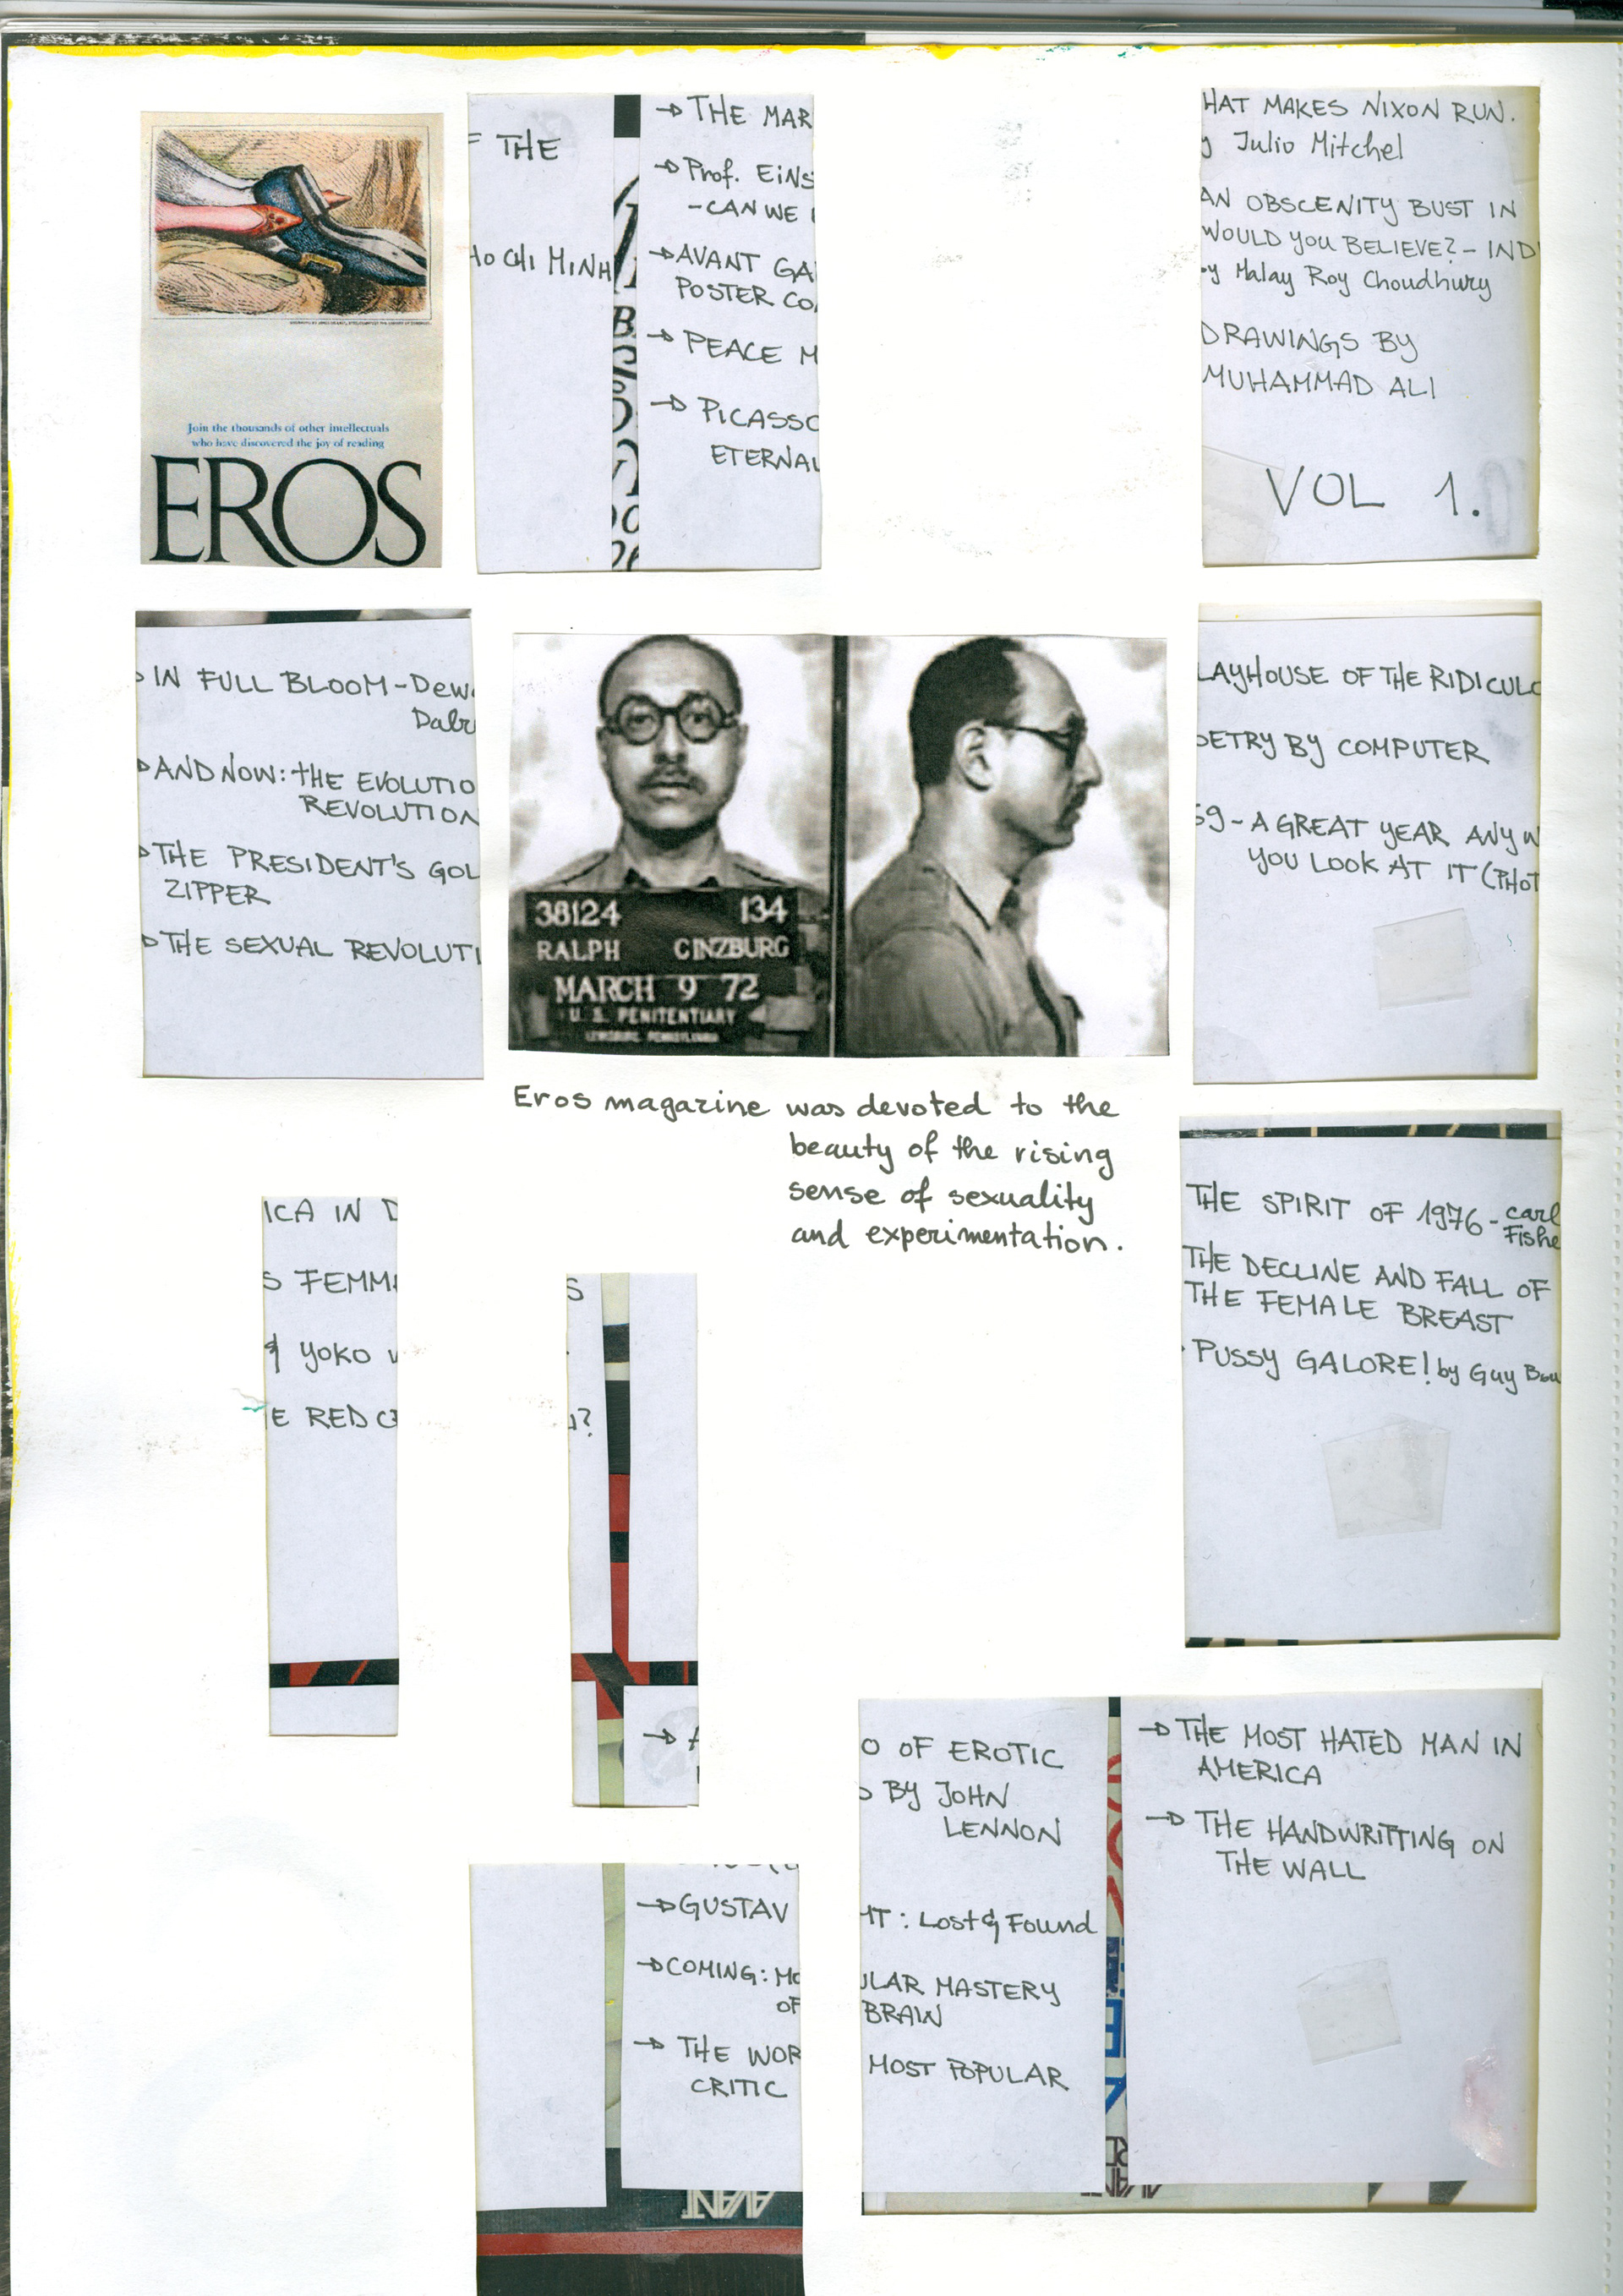 Join the thousands of other intellectuals
who have discovered the joy of reading
EROS
THE
HO CHI MINH
→ THE MAR
→ Prof. EiNS
- CAN WE
→ AVANT GA
POSTER CO
→ PEACE M
→ PICASSO
ETERNAL
HAT MAKES NIXON RUN.
y Julio Mitchel
AN OBSCENITY BUST IN
WOULD YOU BELIEVE? - IND
by Malay Roy Choudhury
DRAWINGS BY
MUHAMMAD ALI
VOL 1.
IN FULL BLOOM - Dew
Dabr
AND NOW: THE EVOLUTIO
REVOLUTION
THE PRESIDENT'S GOL
ZIPPER
THE SEXUAL REVOLUTI
38124 134
RALPH GINZBURG
MARCH 9 72
U. S. PENITENTIARY
LEWISBURG, PENNSYLVANIA
LAYHOUSE OF THE RIDICULO
OETRY BY COMPUTER
69 - A GREAT YEAR ANY W
YOU LOOK AT IT (PHOT
Eros magazine was devoted to the
beauty of the rising
sense of sexuality
and experimentation.
THE SPIRIT OF 1976 - Carl
Fishe
THE DECLINE AND FALL OF
THE FEMALE BREAST
PUSSY GALORE! by Guy Bou
ICA IN D
S FEMM
& YOKO
E RED C
S
?
→ A
O OF EROTIC
BY JOHN
LENNON
NT: Lost & Found
ULAR MASTERY
BRAIN
MOST POPULAR
→ THE MOST HATED MAN IN
AMERICA
→ THE HANDWRITTING ON
THE WALL
→ GUSTAV
→ COMING: MO
OF
→ THE WOR
CRITIC
AVANT
AVANT